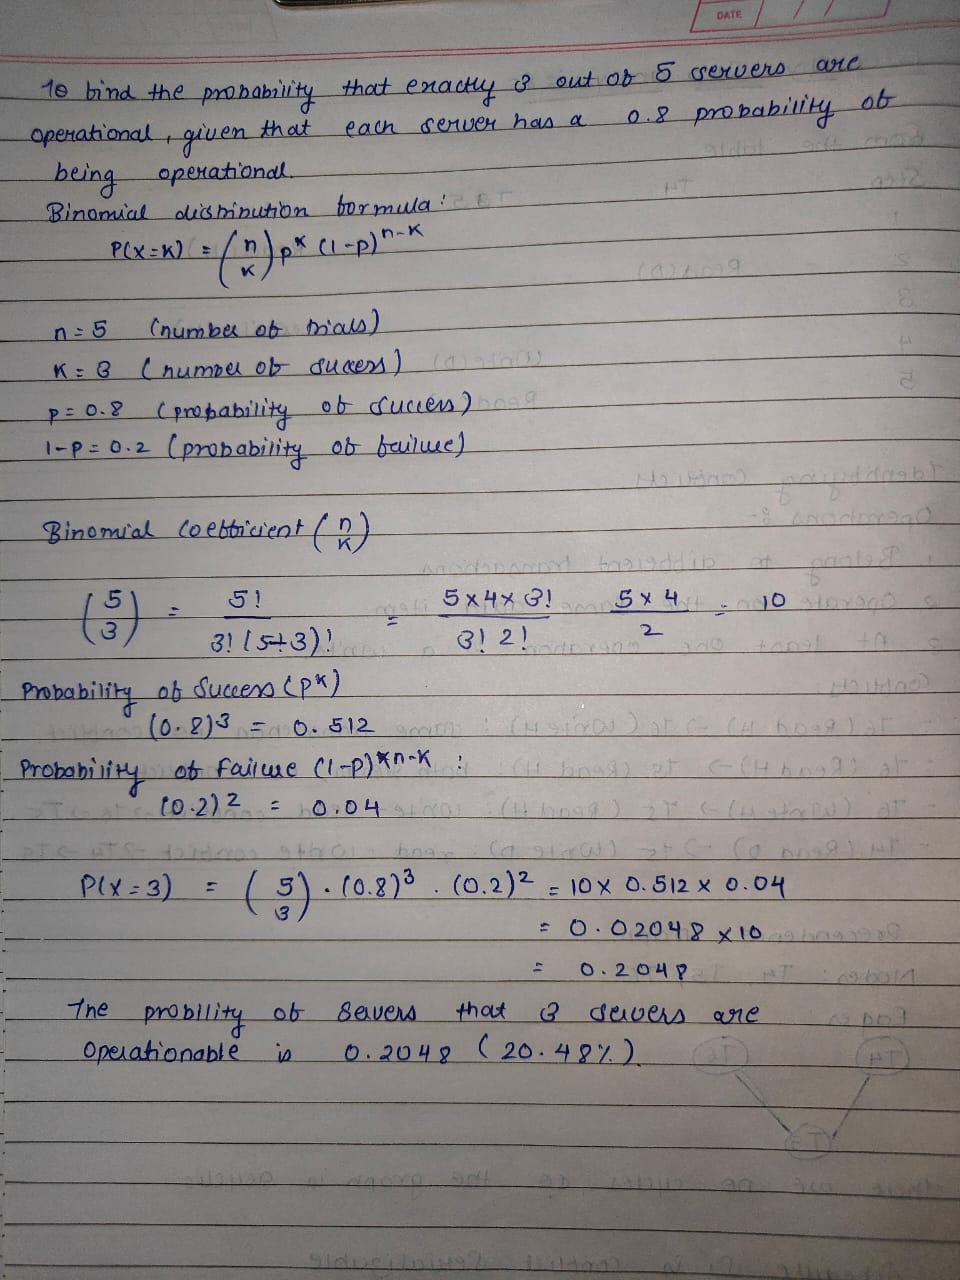 DATE
To find the probability that exactly 3 out of 5 servers are
operational, given that each server has a 0.8 probability of
being operational.
Binomial distribution formula:
P(X=K) = (n K) p^K (1-p)^n-K
n=5 (number of trials)
K=3 (number of success)
p=0.8 (probability of success)
1-p=0.2 (probability of failure)
Binomial coefficient (n K)
(5 3) = 5! / 3!(5-3)! = 5x4x3! / 3! 2! 5x4 / 2 = 10
Probability of Success (p^K)
(0.8)^3 = 0.512
Probability of failure (1-p)^n-K :
(0.2)^2 = 0.04
P(X=3) = (5 3) . (0.8)^3 . (0.2)^2 = 10 x 0.512 x 0.04
= 0.02048 x 10
= 0.2048
The probility of Severs that 3 servers are
Operationable is 0.2048 (20.48%)